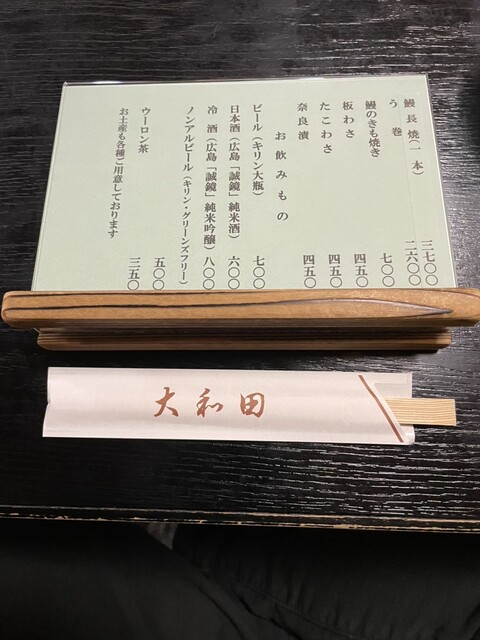 鰻長焼(一本) 三七〇〇
う巻 二六〇〇
鰻のきも焼き 七〇〇
板わさ 四五〇
たこわさ 四五〇
奈良漬 四五〇
お飲みもの
ビール(キリン大瓶) 七〇〇
日本酒(広島「誠鏡」純米酒) 六〇〇
冷酒(広島「誠鏡」純米吟醸) 八〇〇
ノンアルビール(キリン・グリーンズフリー) 五〇〇
ウーロン茶 三五〇
お土産も各種ご用意しております
大和田